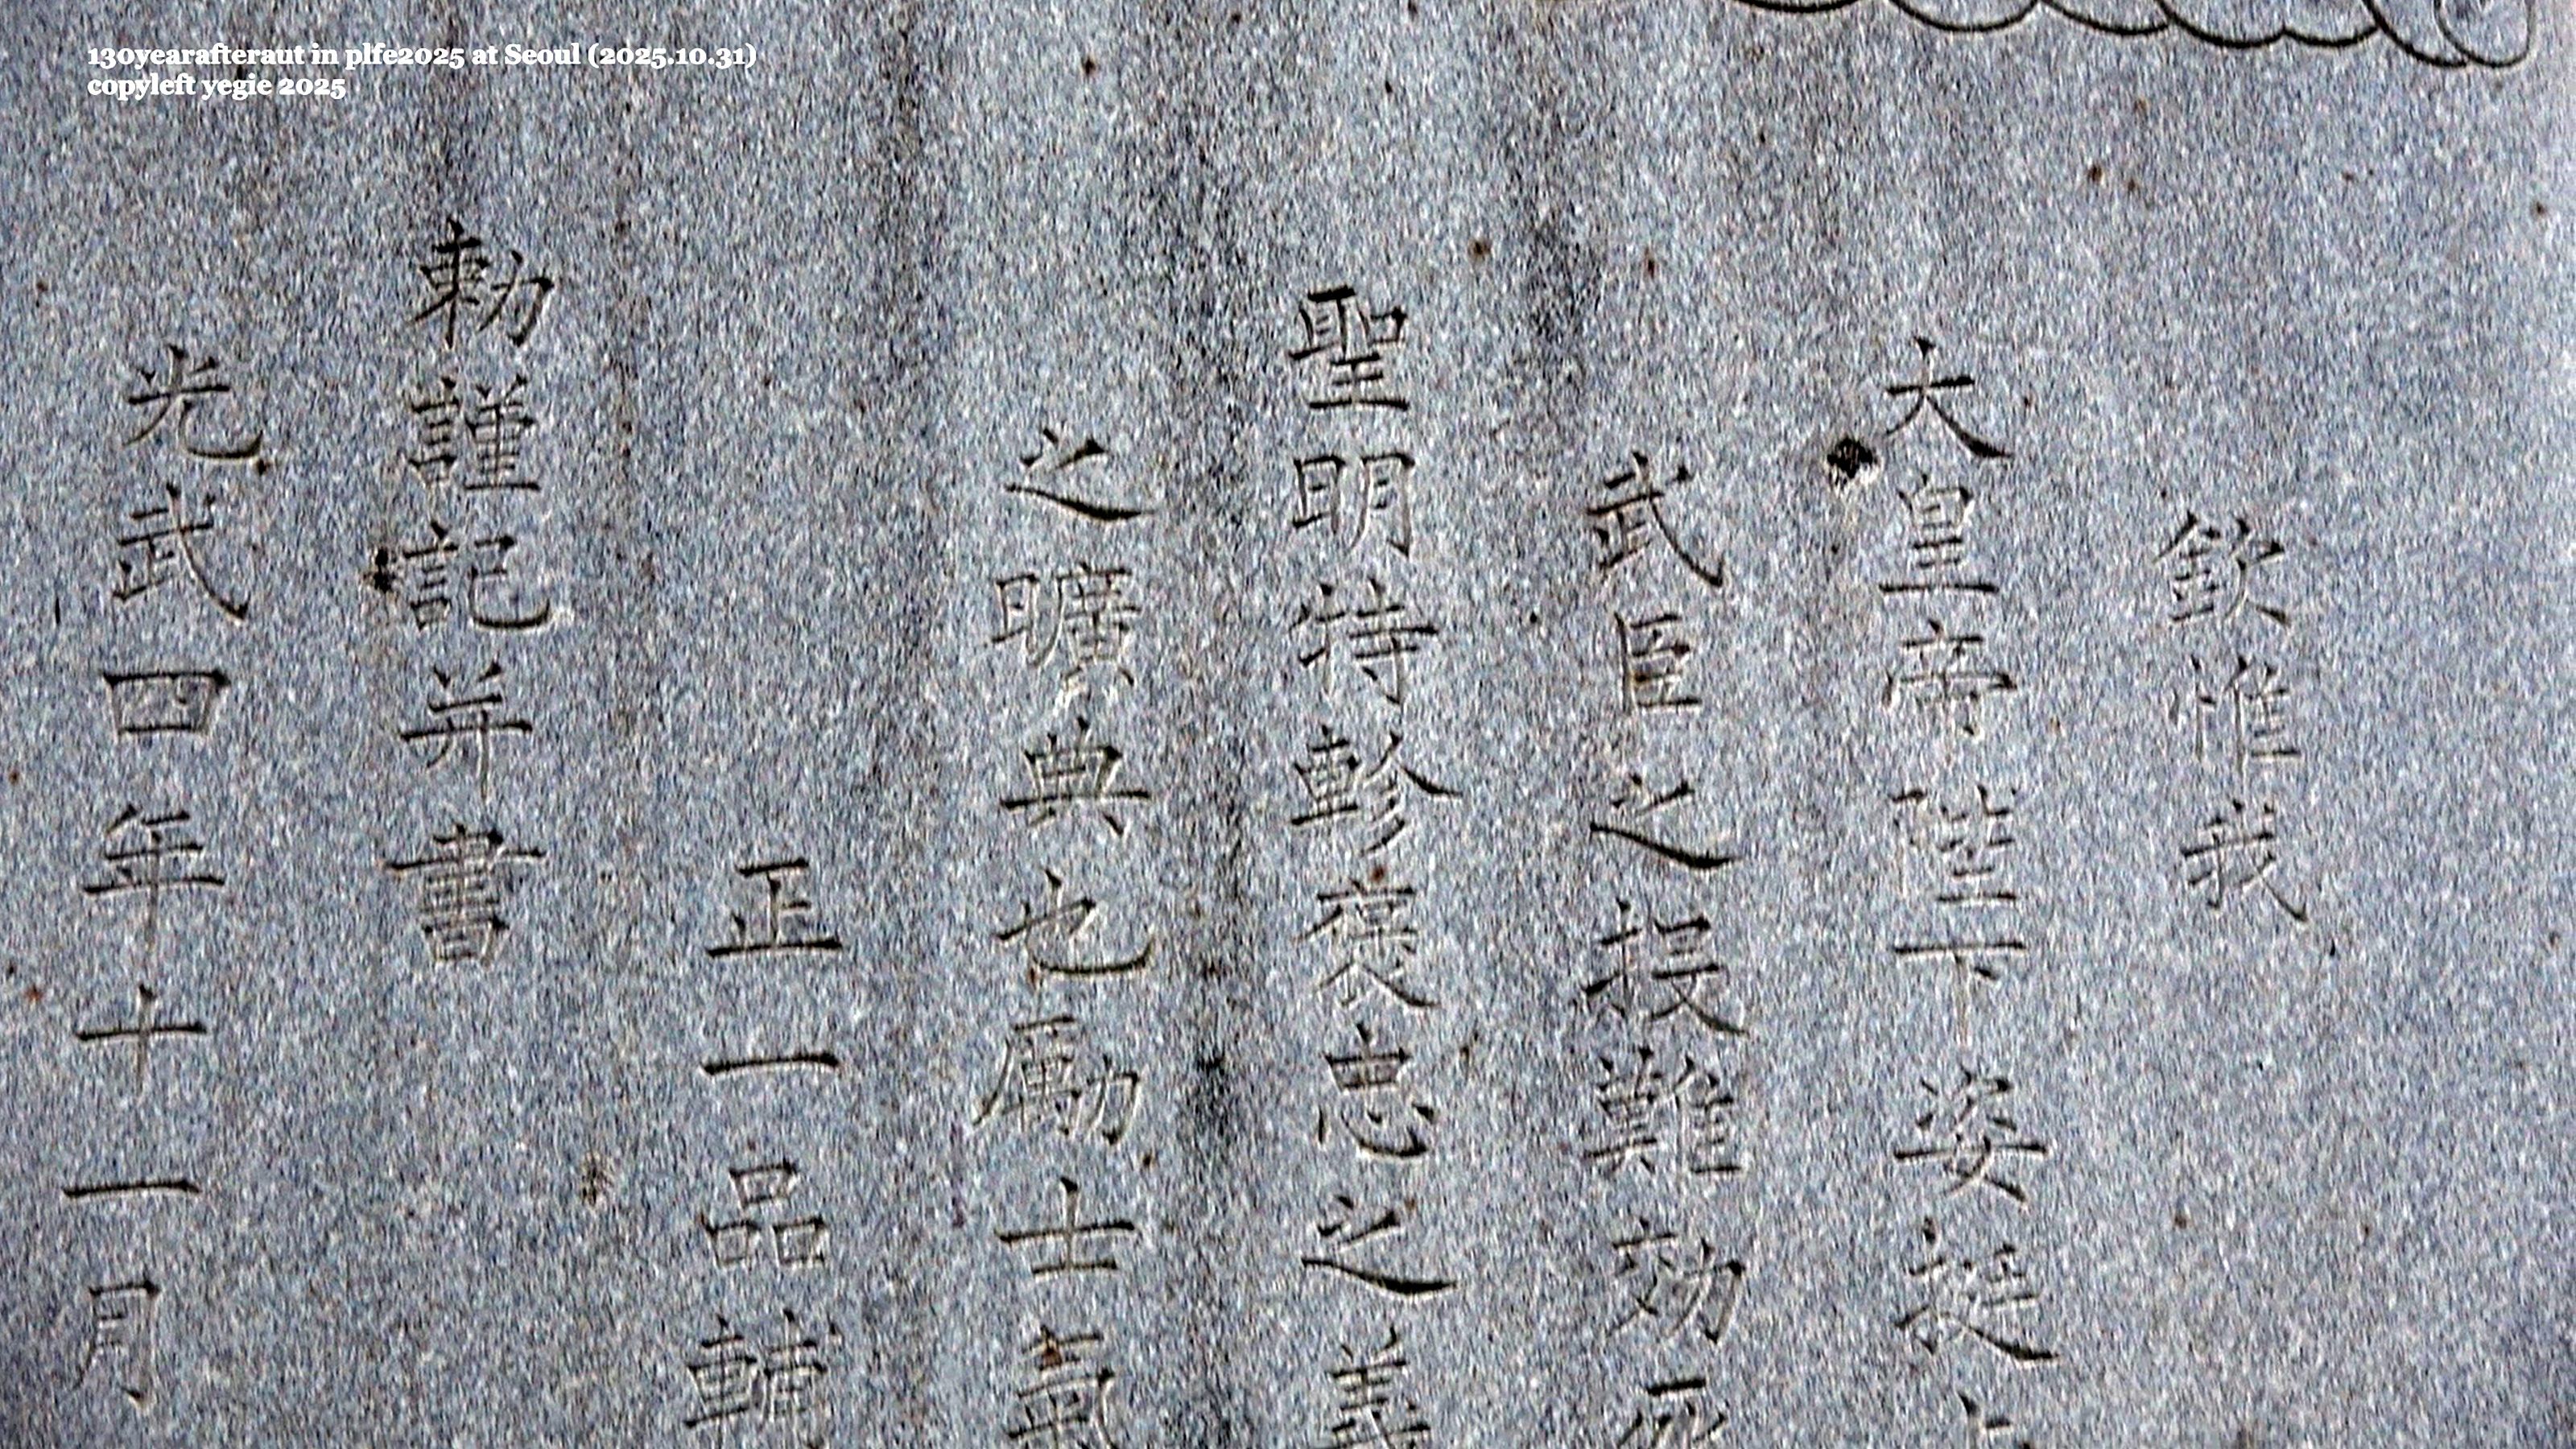 130yearafteraut in plfe2025 at Seoul (2025.10.31)
copyleft yegie 2025
欽惟我
大皇帝陛下姿挺
武臣之投難効死
聖明特軫褒忠之義
之曠典也勵士氣
正一品輔
勅謹記并書
光武四年十一月